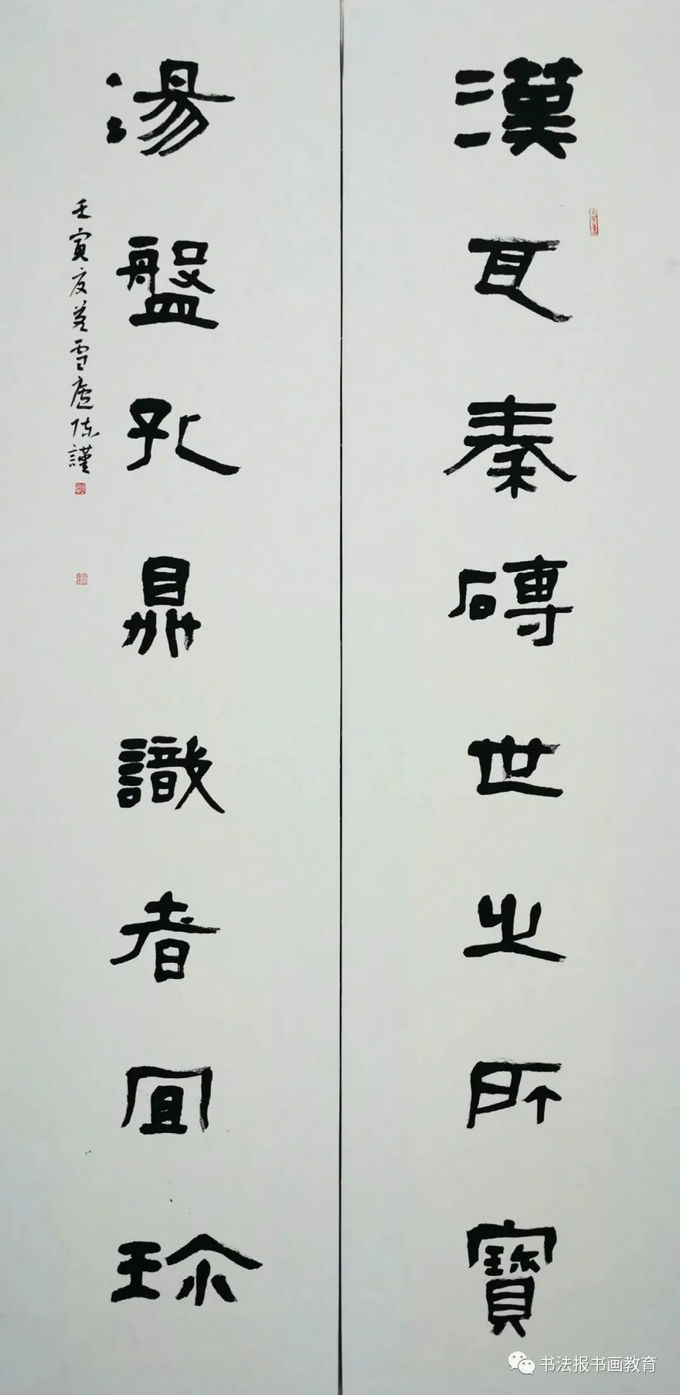 漢瓦秦磚世之所寶
湯盤孔鼎識者宜珍
壬寅夏芒雪廬陳謹
书法报书画教育